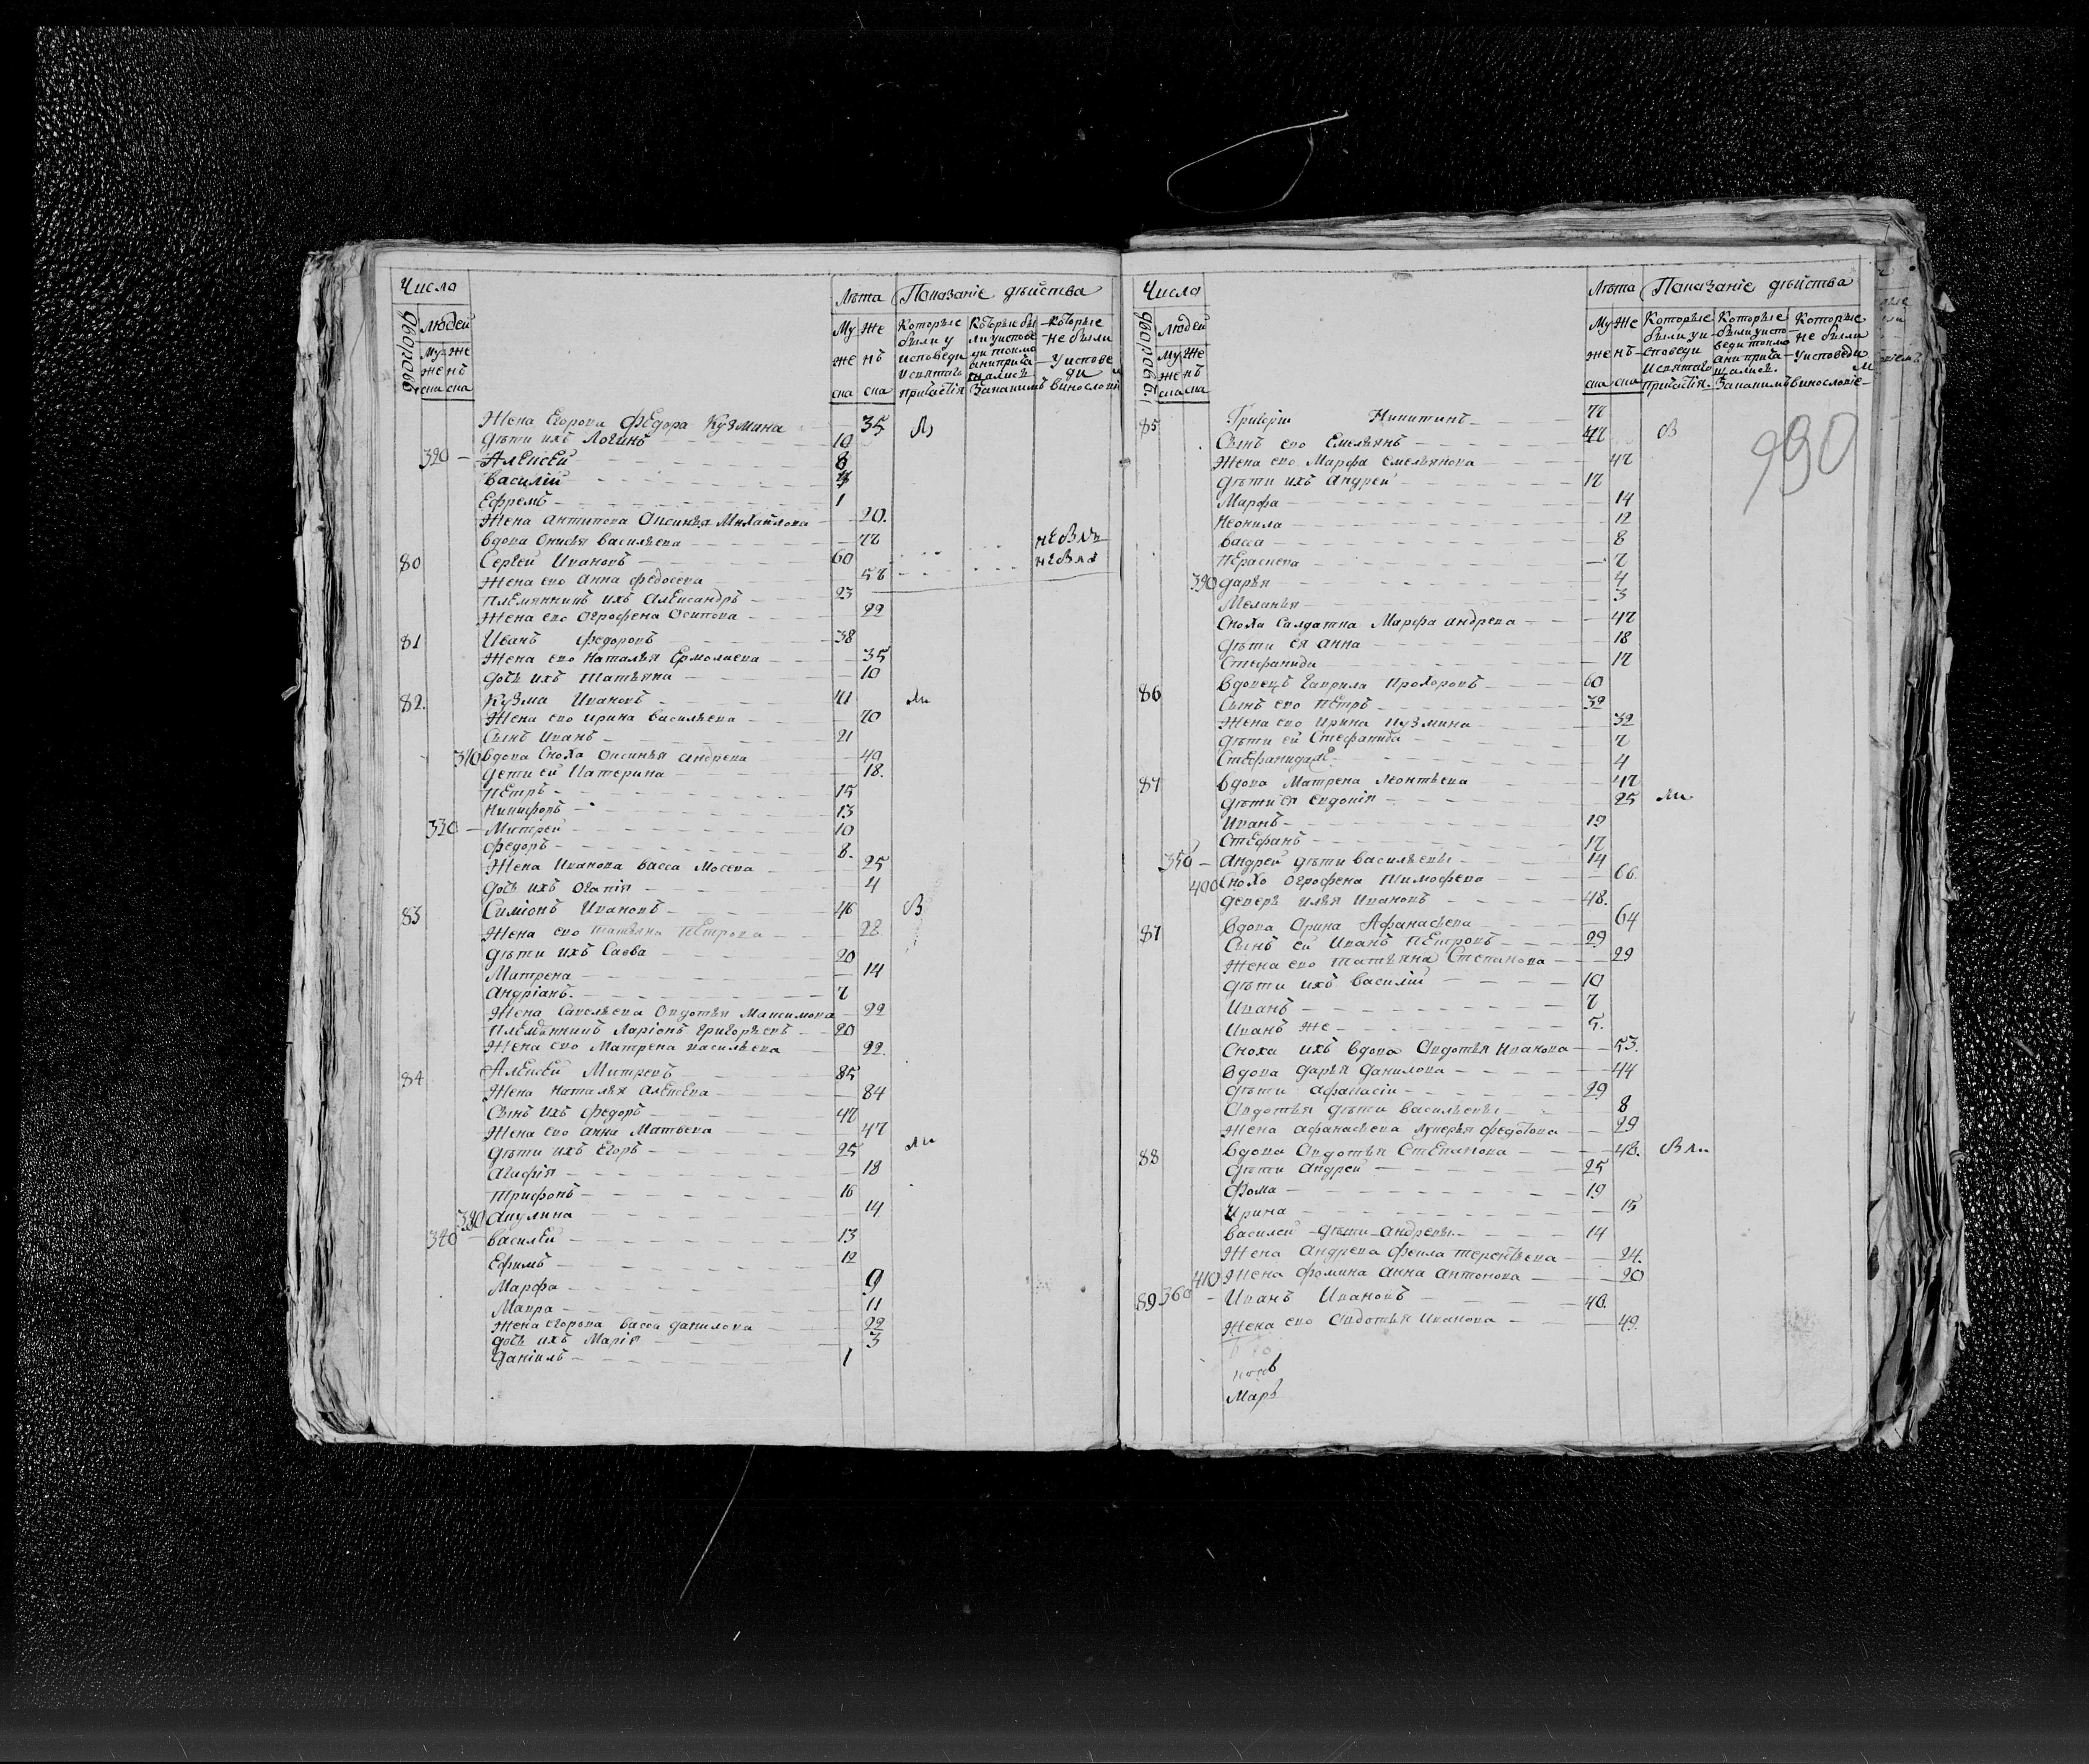 Числа
Лѣта Показаніе дѣйства
дворовъ
Людей
Му Же
Которые были у исповеди и святаго причастія
Которые были у исповеди токмо а не причащались За каким винословіем
Которые не были у исповеди
Му Же
жеска нъска
Жена Егорова Федора Кузмина 35
дѣти ихъ Логинъ 10
320 Алексей 8
Василій
Ефремъ 1
Жена Антипова Оксинья Михайлова 20.
вдова Онисья Васильева 77
80 Сергей Ивановъ 60
Жена ево Анна Федосева 57
племянникъ ихъ Александръ 23
Жена ево Огрофена Осипова 22
81 Иванъ Федоровъ 38
Жена ево Наталья Ермолаева 35
дочь ихъ Татьяна 10
82. Кузма Ивановъ 41
Жена ево Ирина Васильева 70
Сынъ Иванъ 21
вдова Сноха Оксинья Андрева 40
дети ей Катерина 18.
Петръ 15
Никифоръ 13
330 Митрей 10
Федоръ 8.
Жена Иванова Васса Мосева 25
дочь ихъ Огапія 4
83 Симіонъ Ивановъ 46 В
Жена ево Татьяна Петрова 28
дѣти ихъ Савва 20
Матрена 14
Андріанъ. 7
Жена Савельева Овдотья Максимова 22
племянникъ Ларіонъ Григорьевъ 20
Жена ево Матрена Васильева 22.
84 Алексей Митревъ 85
Жена Наталья Алексева 84
Сынъ ихъ Федоръ 47
Жена ево Анна Матвева 47
дѣти ихъ Егоръ 25
Агафія 18
Трифонъ 16
380 Акулина 14
340 Василей 13
Ефимъ 12
Марфа 9
Мавра 11
Жена Егорова Васса Данилова 22
дочь ихъ Марія 3
Даніилъ 1
Числа
Лѣта Показаніе дѣйства
дворовъ
Людей
Му Же
Которые были у исповеди и святаго причастія.
Которые были у исповеди токмо а не причащались. За каким винословіе
Которые не были у исповеди
930
85 Григорій Никитинъ 77
Сынъ ево Емельянъ 47 В
Жена ево Марфа Емельянова 47
дѣти ихъ Андрей 17
Марфа 14
Неонила 12
Васса 8
Пераскева 7
390 Дарья 4
Меланья 3
Сноха Салдатка Марфа Андрева 47
дѣти ея Анна 18
Стефанида 17
86 Вдовецъ Гаврила Прохоровъ 60
Сынъ ево Петръ 32
Жена ево Ирина Кузмина 32
дѣти ей Стефанида 7
Стефанида же 4
87 Вдова Матрена Леонтьева 47
дѣти ея Евдокія 25
Иванъ 19
Стефанъ 17
350 Андрей дѣти Васильевы 14
400 Сноха Огрофена Тимофева 66
Деверь Илья Ивановъ 48.
87 Вдова Орина Афанасьева 64
Сынъ ей Иванъ Петровъ 29
Жена ево Татьяна Степанова 29
дѣти ихъ Василій 10
Иванъ 7
Иванъ же 5.
Сноха ихъ вдова Овдотья Иванова 53.
Вдова Дарья Данилова 44
дѣти Афанасіи 29
Овдотья дѣти Васильевы 8
Жена Афанасьева Лукерья Федотова 29
88 Вдова Овдотья Степанова 48.
дѣти Андрей 25
Фома 19
Ирина 15
Василей дѣти Андревы 14
Жена Андрева Фекла Терентьева 24.
410 Жена Фомина Анна Антонова 20
89 360 Иванъ Ивановъ 40.
Жена ево Овдотья Иванова 49.
Марь